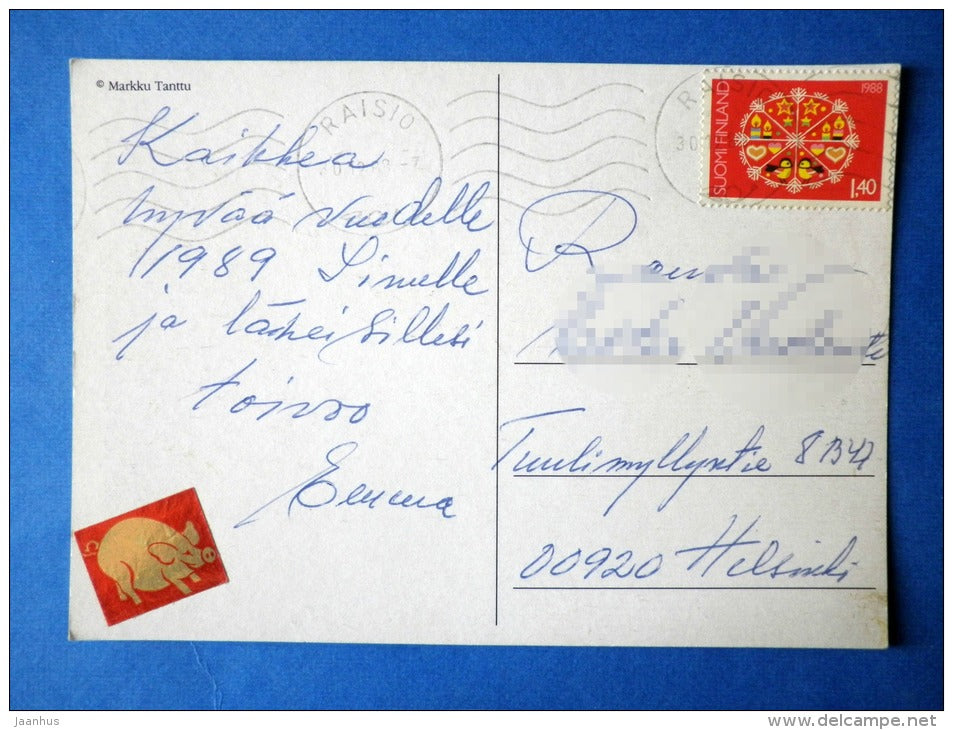 © Markku Tanttu
RAISIO
Kaikkea
hyvää vuodelle
1989 Sinulle
ja läheisillesi
toivoo
Emma
RAISIO
1988
SUOMI FINLAND
1,40
R
Tuulimyllyntie 8 B
00920 Helsinki
Jaanhus
www.delcampe.net